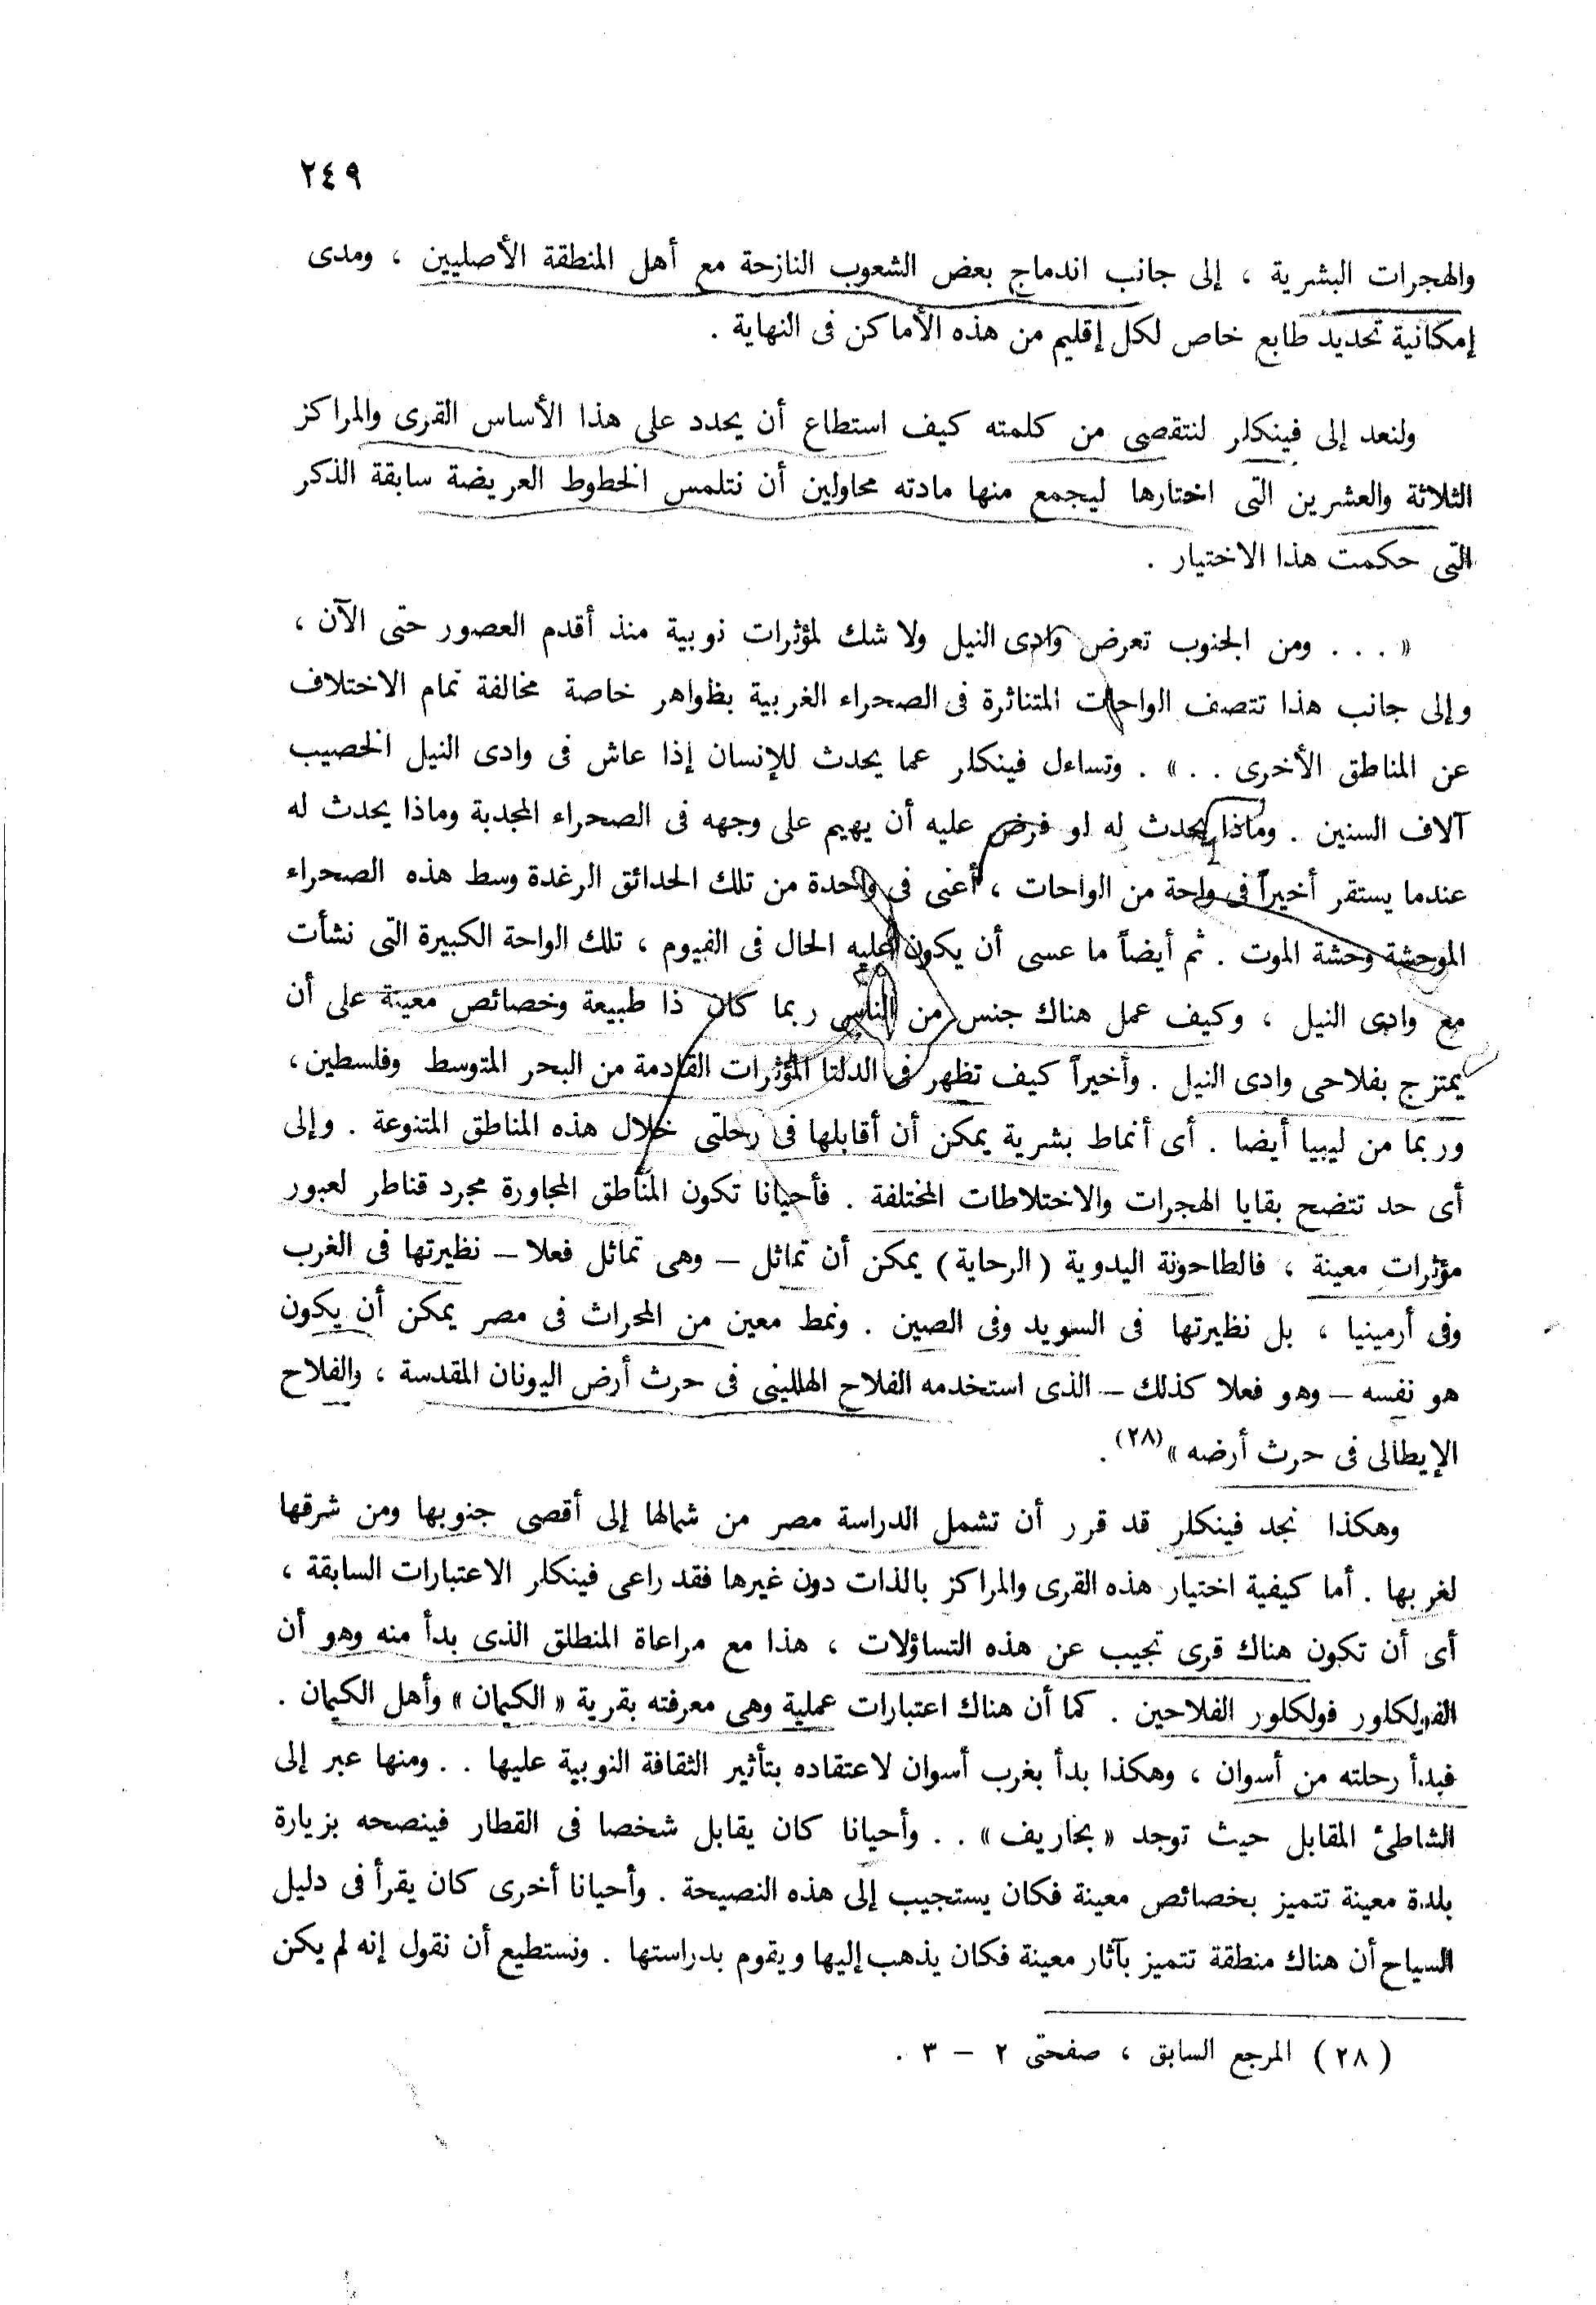 ٢٤٩
والهجرات البشرية ، إلى جانب اندماج بعض الشعوب النازحة مع أهل المنطقة الأصليين ، ومدى
إمكانية تحديد طابع خاص لكل إقليم من هذه الأماكن فى النهاية .
ولنعد إلى فينكلر لنتقصى من كلمته كيف استطاع أن يحدد على هذا الأساس القرى والمراكز
الثلاثة والعشرين التى اختارها ليجمع منها مادته محاولين أن نتلمس الخطوط العريضة سابقة الذكر
التى حكمت هذا الاختيار .
« . . . ومن الجنوب تعرض وادى النيل ولا شك لمؤثرات نوبية منذ أقدم العصور حتى الآن ،
وإلى جانب هذا تتصف الواحات المتناثرة فى الصحراء الغربية بظواهر خاصة مخالفة تمام الاختلاف
عن المناطق الأخرى . . » . وتساءل فينكلر عما يحدث للإنسان إذا عاش فى وادى النيل الخصيب
آلاف السنين . وماذا يحدث له لو فرض عليه أن يهيم على وجهه فى الصحراء المجدبة وماذا يحدث له
عندما يستقر أخيراً فى واحة من الواحات ، أعنى فى واحدة من تلك الحدائق الرغدة وسط هذه الصحراء
الموحشة وحشة الموت . ثم أيضاً ما عسى أن يكون عليه الحال فى الفيوم ، تلك الواحة الكبيرة التى نشأت
مع وادى النيل ، وكيف عمل هناك جنس من الناس ربما كان ذا طبيعة وخصائص معينة على أن
يمتزج بفلاحى وادى النيل . وأخيراً كيف تظهر فى الدلتا المؤثرات القادمة من البحر المتوسط وفلسطين ،
وربما من ليبيا أيضا . أى أنماط بشرية يمكن أن أقابلها فى رحلتى خلال هذه المناطق المتنوعة . وإلى
أى حد تتضح بقايا الهجرات والاختلاطات المختلفة . فأحيانا تكون المناطق المجاورة مجرد قناطر لعبور
مؤثرات معينة ، فالطاحونة اليدوية ( الرحاية ) يمكن أن تماثل – وهى تماثل فعلا – نظيرتها فى الغرب
وفى أرمينيا ، بل نظيرتها فى السويد وفى الصين . ونمط معين من المحراث فى مصر يمكن أن يكون
هو نفسه – وهو فعلا كذلك – الذى استخدمه الفلاح الهللينى فى حرث أرض اليونان المقدسة ، والفلاح
الإيطالى فى حرث أرضه »(٢٨) .
وهكذا نجد فينكلر قد قرر أن تشمل الدراسة مصر من شمالها إلى أقصى جنوبها ومن شرقها
لغربها . أما كيفية اختيار هذه القرى والمراكز بالذات دون غيرها فقد راعى فينكلر الاعتبارات السابقة ،
أى أن تكون هناك قرى تجيب عن هذه التساؤلات ، هذا مع مراعاة المنطلق الذى بدأ منه وهو أن
الفولكلور فولكلور الفلاحين . كما أن هناك اعتبارات عملية وهى معرفته بقرية « الكيمان » وأهل الكيمان .
فبدأ رحلته من أسوان ، وهكذا بدأ بغرب أسوان لاعتقاده بتأثير الثقافة النوبية عليها . . ومنها عبر إلى
الشاطئ المقابل حيث توجد « بخاريف » . . وأحيانا كان يقابل شخصا فى القطار فينصحه بزيارة
بلدة معينة تتميز بخصائص معينة فكان يستجيب إلى هذه النصيحة . وأحيانا أخرى كان يقرأ فى دليل
السياح أن هناك منطقة تتميز بآثار معينة فكان يذهب إليها ويقوم بدراستها . ونستطيع أن نقول إنه لم يكن
( ٢٨ ) المرجع السابق ، صفحتى ٢ – ٣ .